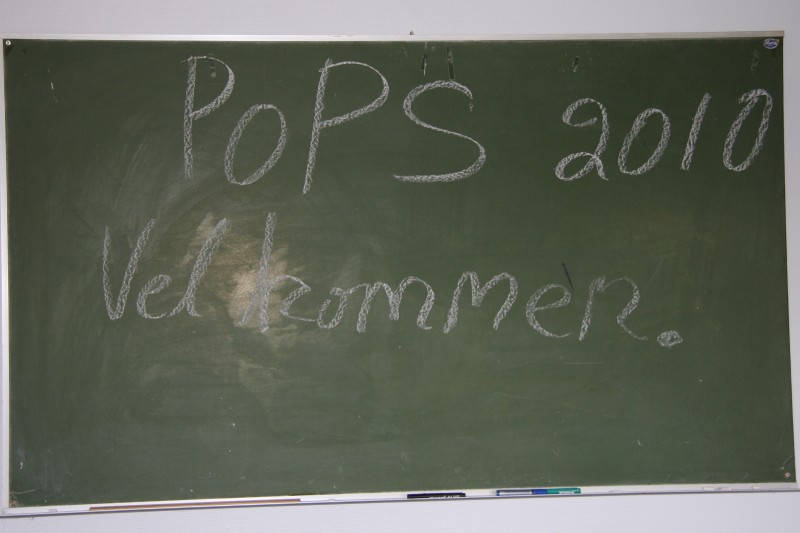 PoPS 2010
Velkommen.